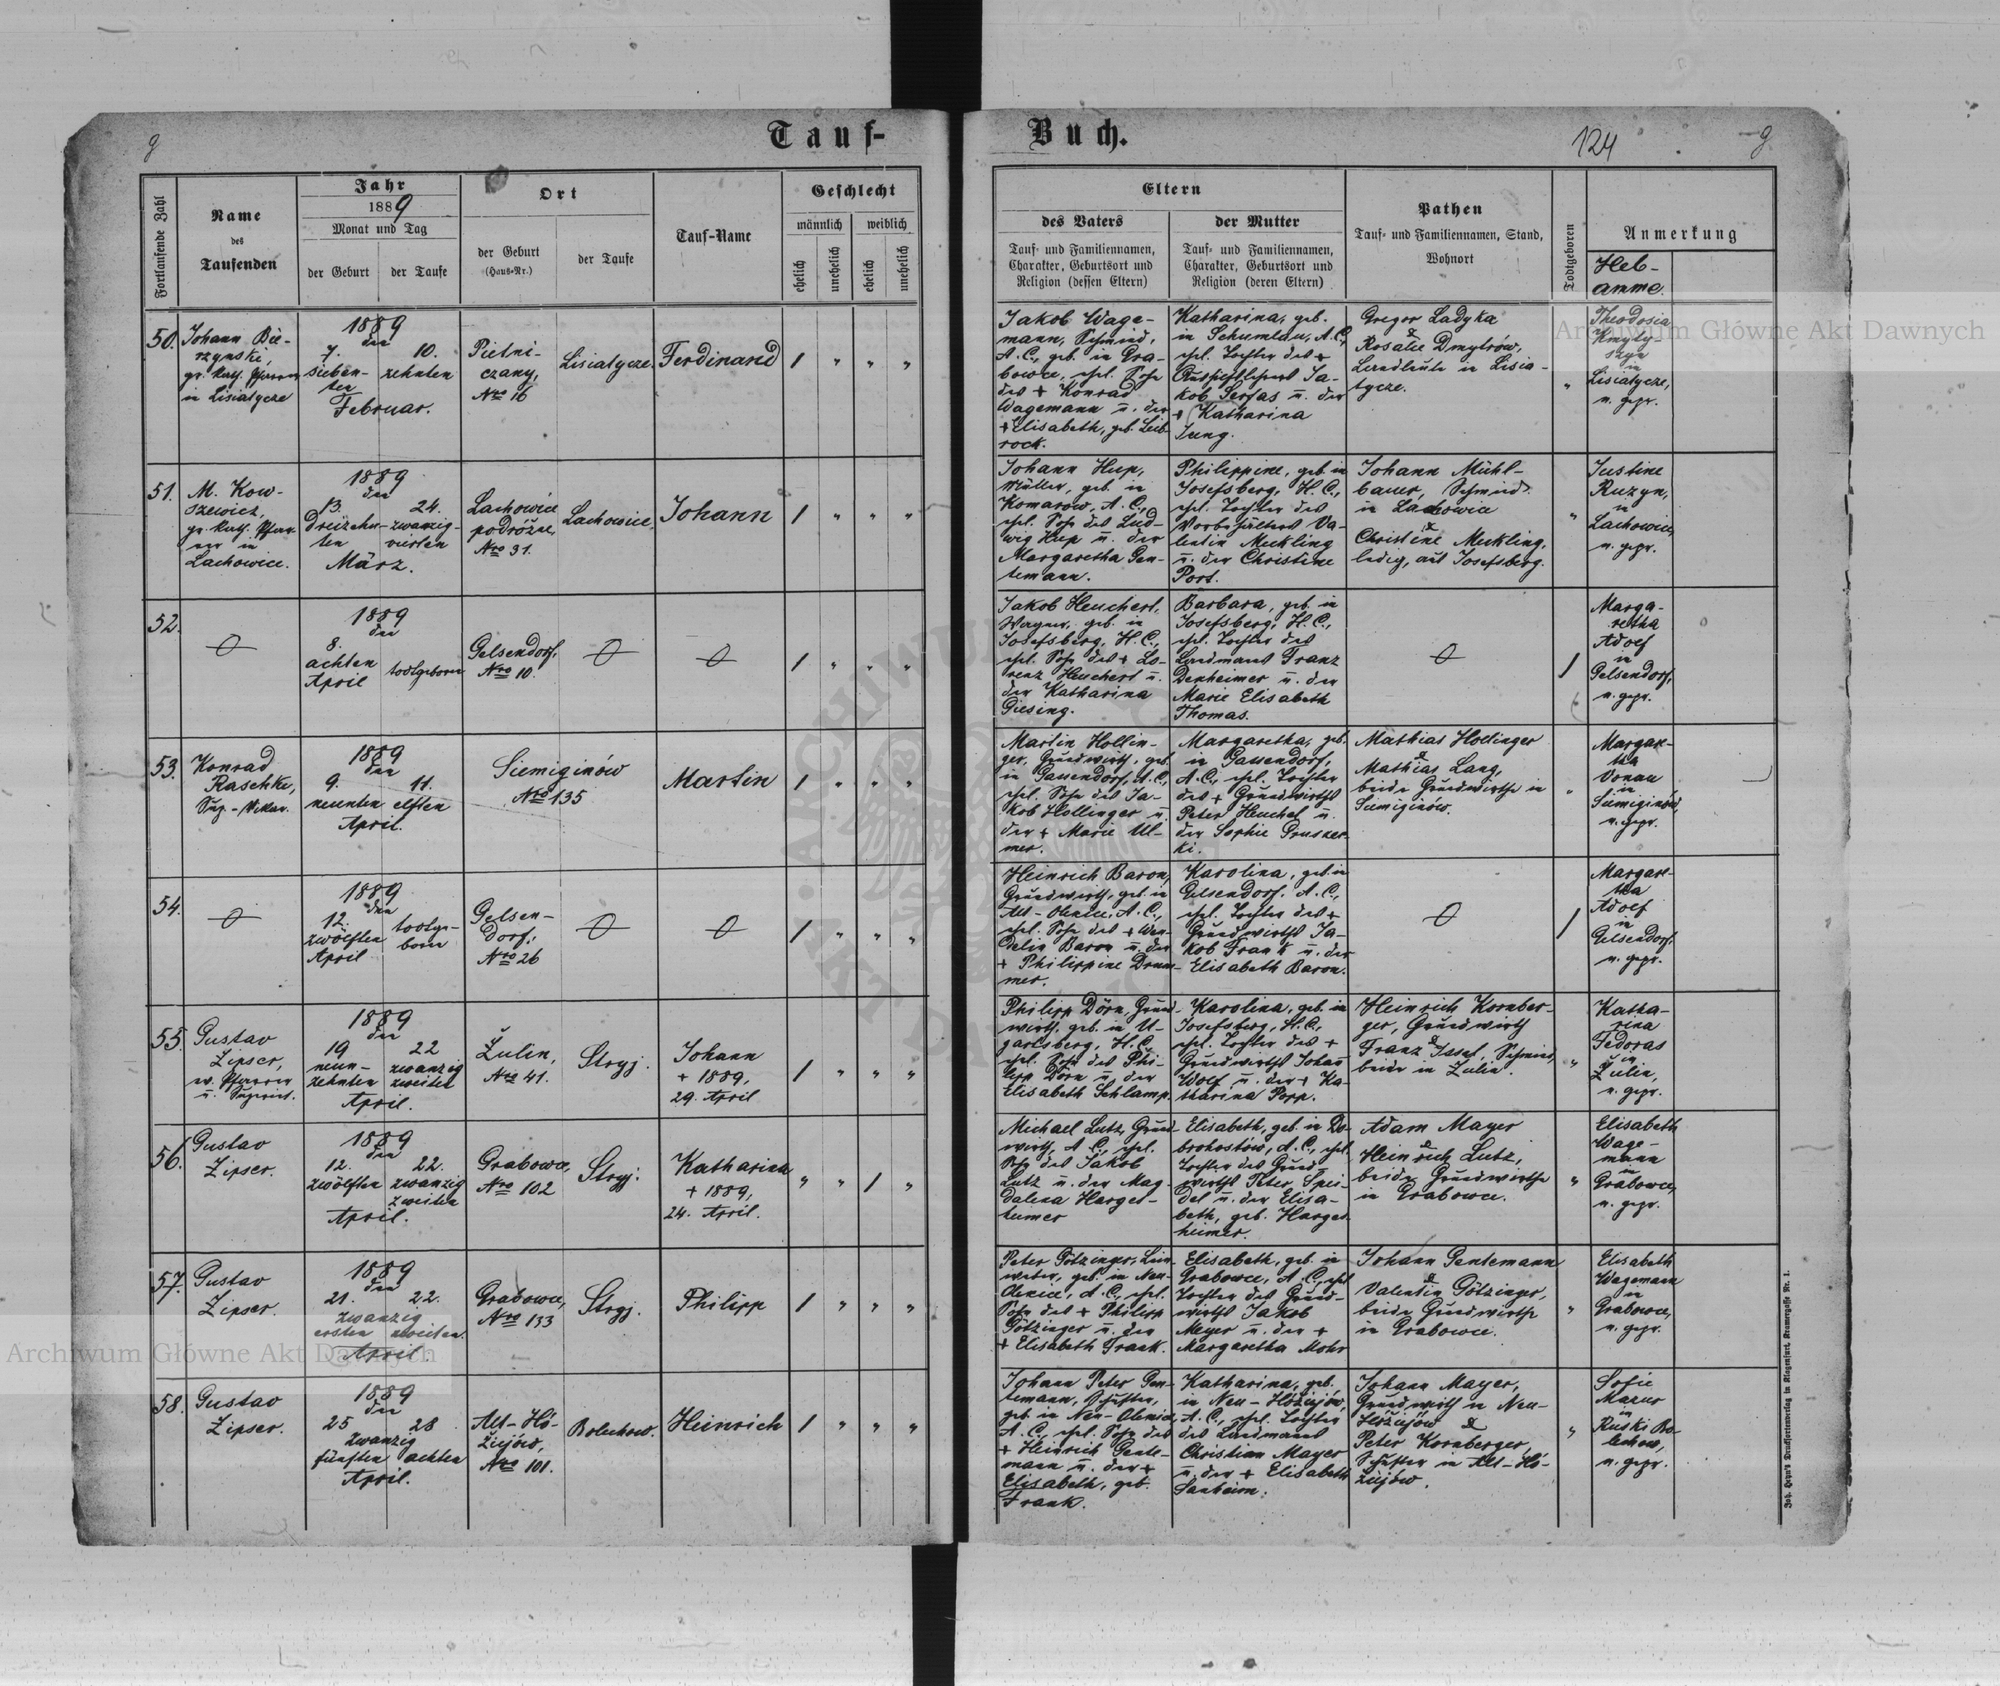 9
Tauf-
Buch.
124
9
Fortlaufende Zahl
Name
des
Taufenden
Jahr
1889
Monat und Tag
der Geburt
der Taufe
Ort
der Geburt
(Haus-Nr.)
der Taufe
Tauf-Name
Geschlecht
männlich
weiblich
ehelich
unehelich
ehelich
unehelich
Eltern
des Vaters
Tauf- und Familiennamen,
Charakter, Geburtsort und
Religion (dessen Eltern)
der Mutter
Tauf- und Familiennamen,
Charakter, Geburtsort und
Religion (deren Eltern)
Pathen
Tauf- und Familiennamen, Stand,
Wohnort
Todtgeboren
Anmerkung
Heb-
amme.
50.
Johann Bie-
rzynski,
gr. kath. Pfarrer
in Lisiatycze
1889
den
7. 10.
sieben- zehnten
ten
Februar.
Pietni-
czany,
Nro 16
Lisiatycze.
Ferdinand
Jakob Wage-
mann, Schmied,
A. C., geb. in Gra-
bowce, ehel. Sohn
des + Konrad
Wagemann u. der
+ Elisabeth, geb. Leib-
rock.
Katharina, geb.
in Schumlau, A. C.,
ehel. Tochter des +
Jakob Serfas u. der
+ Katharina
Jung.
Gregor Ladyka
&
Rosalie Dmytrów,
Landleute in Lisia-
tycze.
Theodosia
Kmyty-
szyn
in
Lisiatycze,
n. gepr.
51.
M. Kow-
szewicz,
gr. kath. Pfar-
rer in
Lachowice.
1889
den
13. 24.
Dreizehn- zwanzig-
ten vierten
März.
Lachowice
podróżne,
Nro 31.
Lachowice,
Johann
Johann Hup,
Müller, geb. in
Komarow, A. C.,
ehel. Sohn des Lud-
wig Hup u. der
Margaretha Gen-
temann.
Philippine, geb. in
Josefsberg, H. C.,
ehel. Tochter des
Vorbehälters Va-
lentin Meckling
u. der Christine
Port.
Johann Mühl-
bauer, Schmied
in Lachowice
&
Christine Meckling,
ledig, aus Josefsberg.
Justine
Ruzyn,
in
Lachowice,
n. gepr.
52.
1889
den
8.
achten todtgeboren
April
Gelsendorf,
Nro 10.
Jakob Heuchert,
Wagner, geb. in
Josefsberg, H. C.,
ehel. Sohn des + Lo-
renz Heuchert u.
der Katharina
Giesing.
Barbara, geb. in
Josefsberg, H. C.,
ehel. Tochter des
Landmanns Franz
Denheimer u. der
Marie Elisabeth
Thomas.
Marga-
retha
Adolf
in
Gelsendorf,
n. gepr.
53.
Konrad
Raschke,
Sup.-Vikar.
1889
den
9. 11.
neunten elften
April.
Siemiginów
Nro 135
Martin
Martin Hollin-
ger, Grundwirth, geb.
in Gassendorf, A. C.,
ehel. Sohn des Ja-
kob Hollinger u.
der + Marie Ul-
mer.
Margaretha, geb.
in Gassendorf,
A. C., ehel. Tochter
des + Grundwirths
Peter Heuchel u.
der Sophie Prusker-
ki.
Mathias Hollinger
&
Mathias Lang,
beide Grundwirthe in
Siemiginów.
Margar-
tha
Donau
in
Siemiginów,
n. gepr.
54.
1889
den
12. todtge-
zwölften born
April
Gelsen-
dorf,
Nro 26
Heinrich Baron,
Grundwirth, geb. in
Alt-Olenice, A. C.,
ehel. Sohn des + Wen-
delin Baron u. der
+ Philippine Drum-
mer.
Karolina, geb. in
Gelsendorf, A. C.,
ehel. Tochter des +
Grundwirths Ja-
kob Frank u. der
Elisabeth Baron.
Margare-
tha
Adolf
in
Gelsendorf,
n. gepr.
55.
Gustav
Zipser,
ev. Pfarrer
u. Superint.
1889
den
19 22
neun- zwanzig
zehnten zweiten
April.
Žulin,
Nro 41.
Stryj.
Johann
+ 1889,
29. April
Philipp Dörn, Grund-
wirth, geb. in U-
gartsberg, H. C.,
ehel. Sohn des Phi-
lipp Dörn u. der
Elisabeth Schlamp.
Karolina, geb. in
Josefsberg, H. C.,
ehel. Tochter des +
Grundwirths Johann
Wolf u. der + Ka-
tharina Popp.
Heinrich Kornber-
ger, Grundwirth
&
Franz Issel, Schmied,
beide in Zulin.
Katha-
rina
Fedoras
in
Žulin,
n. gepr.
56.
Gustav
Zipser.
1889
den
12. 22.
zwölften zwanzig
zweiten
April.
Grabowce,
Nro 102
Stryj.
Katharina
+ 1889,
24. April.
Michael Lutz, Grund-
wirth, A. C., ehel.
Sohn des Jakob
Lutz u. der Mag-
dalena Harges-
heimer
Elisabeth, geb. in Do-
brohostów, A. C., ehel.
Tochter des Grund-
wirths Peter Spei-
del u. der Elisa-
beth, geb. Harges-
heimer.
Adam Mayer
&
Heinrich Lutz,
beide Grundwirthe
in Grabowce.
Elisabeth
Wage-
mann
in
Grabowce,
n. gepr.
57.
Gustav
Zipser.
1889
den
21. 22.
zwanzig
ersten zweiten
April.
Grabowce,
Nro 133
Stryj.
Philipp
Peter Götzinger, Lein-
weber, geb. in Neu-
Olenice, A. C., ehel.
Sohn des + Philipp
Götzinger u. der
+ Elisabeth Frank.
Elisabeth, geb. in
Grabowce, A. C., ehel.
Tochter des Grund-
wirths Jakob
Meyer u. der +
Margaretha Mohr
Johann Gentemann
&
Valentin Götzinger,
beide Grundwirthe
in Grabowce.
Elisabeth
Wagemann
in
Grabowce,
n. gepr.
58.
Gustav
Zipser.
1889
den
25 28
zwanzig
fünften achten
April.
Alt-Hó-
žiejów,
Nro 101.
Bolechow.
Heinrich
Johann Peter Gen-
temann, Schuster,
geb. in Neu-Olenice,
A. C., ehel. Sohn des
+ Heinrich Gente-
mann u. der +
Elisabeth, geb.
Frank.
Katharina, geb.
in Neu-Hóžiejów,
A. C., ehel. Tochter
des Landmanns
Christian Mayer
u. der + Elisabeth
Sanheim.
Johann Mayer,
Grundwirth in Neu-
Hóžiejów &
Peter Kornberger,
Schuster in Alt-Hó-
žiejów.
Sofie
Mazur
in
Ruski Bo-
lechow,
n. gepr.
Joh. Heyn's Drucksortenverlag in Klagenfurt, Kramergasse Nr. 1.
Archiwum Główne Akt Dawnych
Archiwum Główne Akt Dawnych